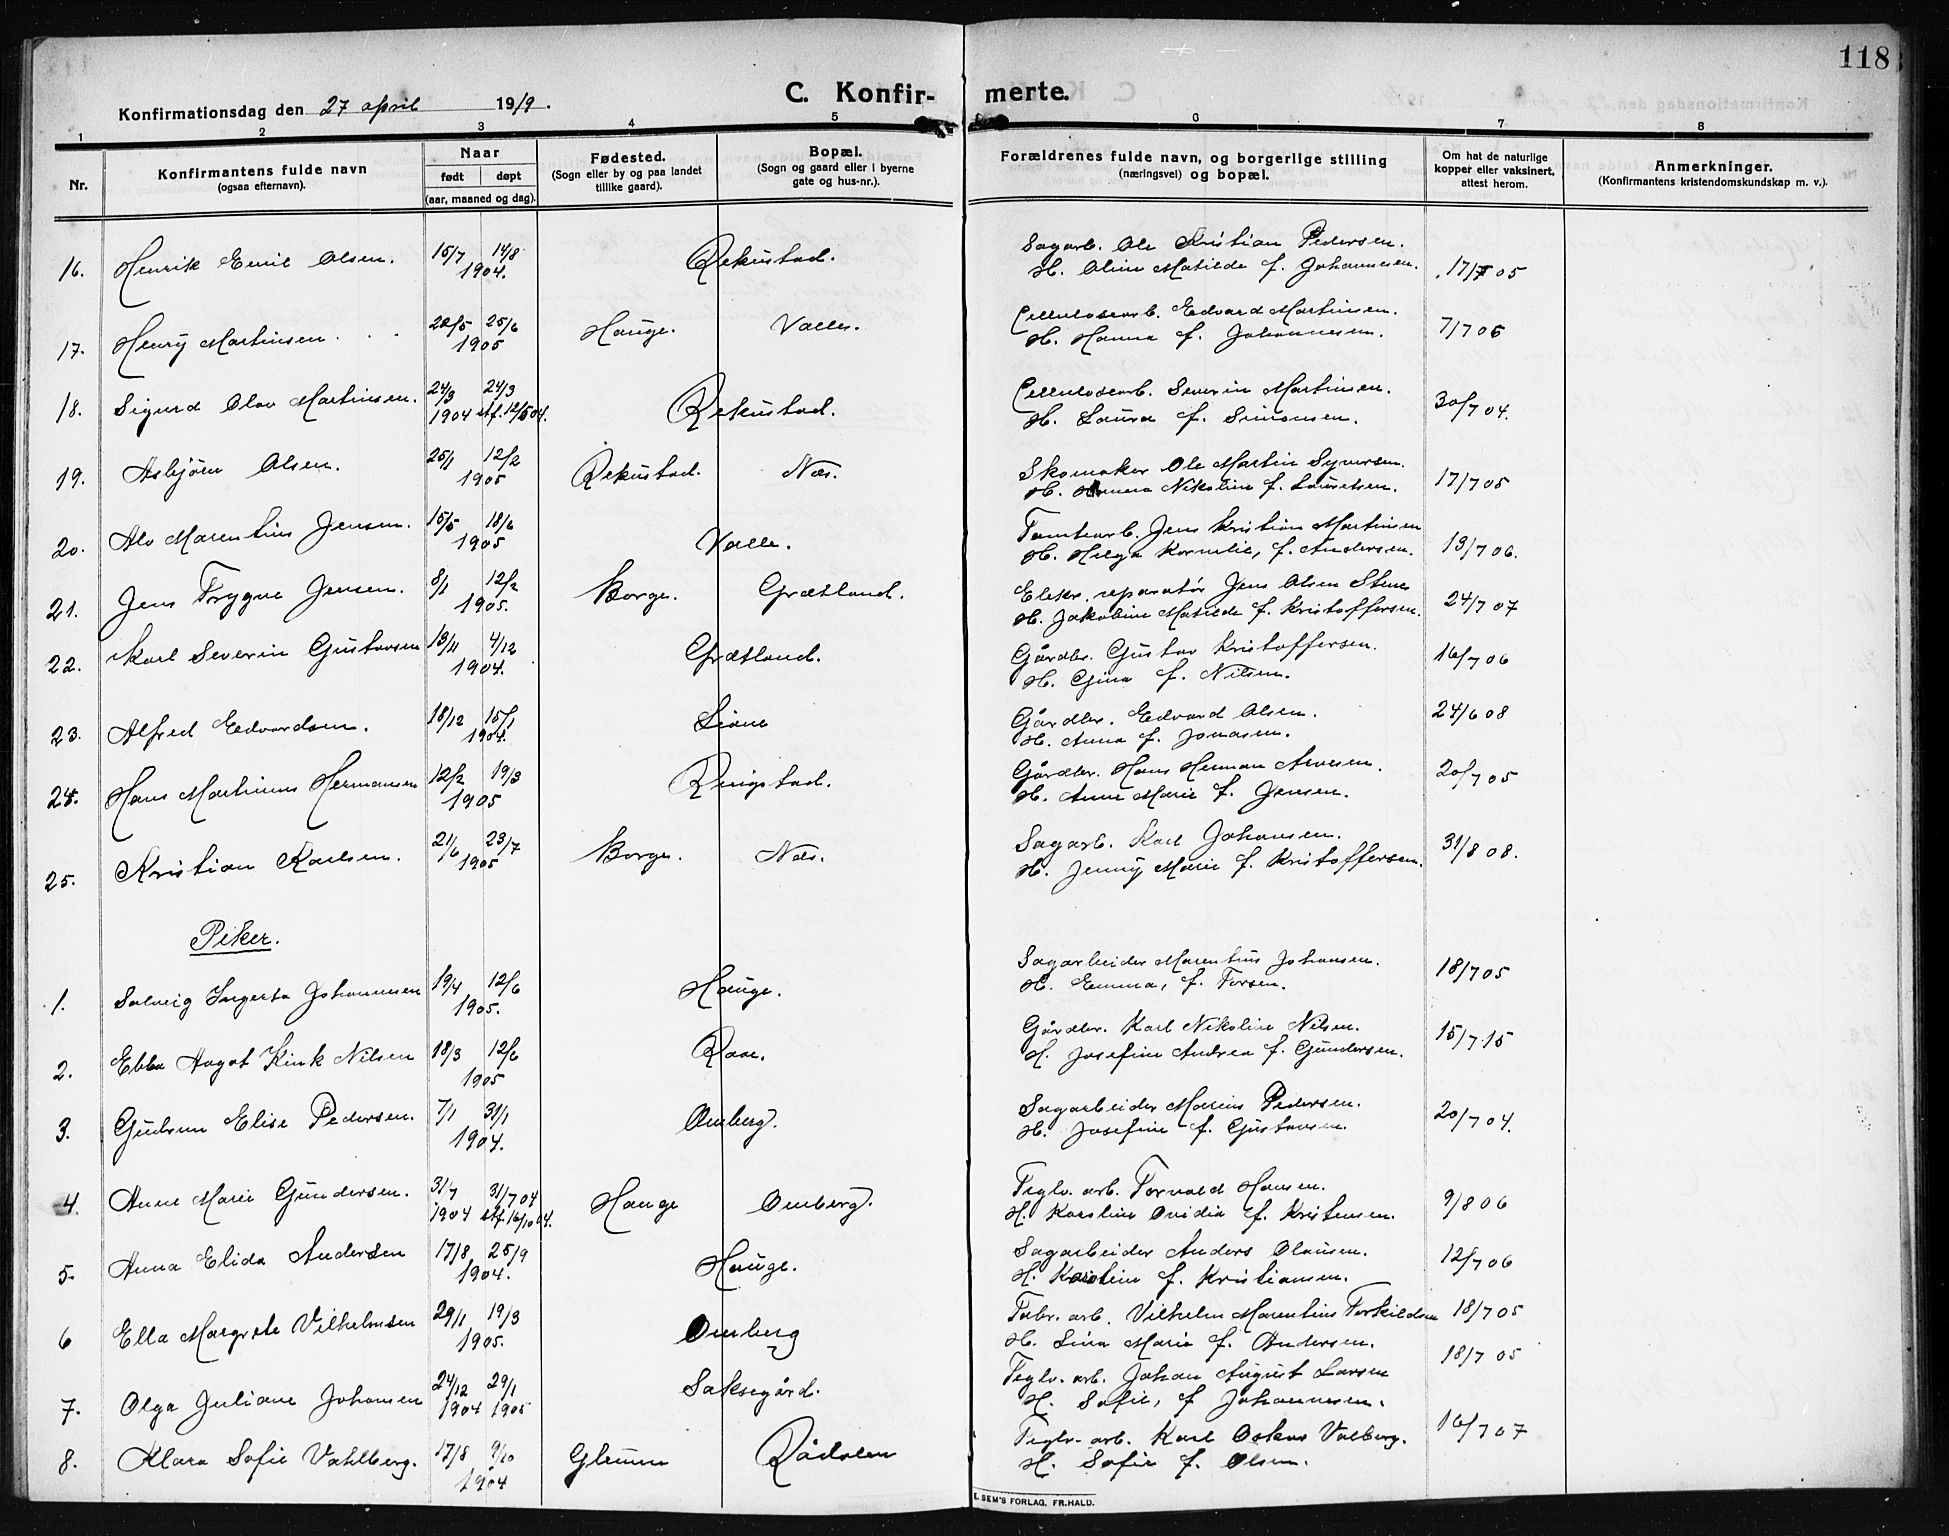 118
Konfirmationsdag den 27 april 1919.
C. Konfir- merte.
1 2 3 4 5 6 7 8
Nr.
Konfirmantens fulde navn
(ogsaa efternavn).
Naar
født døpt
(aar, maaned og dag).
Fødested.
(Sogn eller by og paa landet
tillike gaard).
Bopæl.
(Sogn og gaard eller i byerne
gate og hus-nr.).
Forældrenes fulde navn, og borgerlige stilling
(næringsvei) og bopæl.
Om hat de naturlige
kopper eller vaksinert,
attest herom.
Anmerkninger.
(Konfirmantens kristendomskundskap m. v.).
16. Henrik Emil Olsen. 15/7 14/8 1904. Rekustad. Sagarb. Ole Kristian Pedersen. 17/7 05
H. Oline Matilde f. Johannesen.
17. Henry Martinsen. 22/5 25/6 1905 Hauge. Valle. Cellulosearb. Edvard Martinsen. 7/7 06
H. Hanna f. Johannesen.
18. Sigurd Olav Martinsen. 24/3 24/3 1904 stf. 12/5 04. Rekustad. Cellulosearb. Severin Martinsen. 30/7 04.
H. Laura f. Simonsen.
19. Asbjörn Olsen. 25/1 12/2 1905 Rekustad. Næs. Skomaker Ole Martin Syversen. 17/7 05
H. Nikoline f. Lauritsen.
20. Alv Marentius Jensen. 15/5 18/6 1905 Valle. Tomtearb. Jens Kristian Martinsen 19/7 06.
H. Helga Kornelie, f. Andersen.
21. Jens Trygve Jensen. 8/1 12/2 1905. Borge. Grætland. Elektr. reparatør Jens Olsen Stene 24/7 07
H. Jakobine Matilde f. Kristoffersen.
22. Karl Severin Gustavsen 13/11 4/12 1904. Grætland. Gårdbr. Gustav Kristoffersen. 16/7 06
H. Gina f. Nilsen.
23. Alfred Edvardsen. 18/12 15/1 1904. Liane Gårdbr. Edvard Olsen. 24/6 08
H. Anna f. Jonasen.
24. Hans Martinius Hermansen 12/2 19/3 1905 Ringstad. Gårdbr. Hans Herman Arvesen. 20/7 05
H. Anne Marie f. Jensen.
25. Kristian Karlsen. 21/6 23/7 1905 Borge. Næs. Sagarb. Karl Johansen. 31/8 08.
H. Jenny Marie f. Kristoffersen.
Piker.
1. Solveig Ingerta Johannesen 19/4 12/6 1905. Hauge. Sagarbeider Marentius Johansen. 18/7 05
H. Emma, f. Torsen.
2. Ebba Hagot Kink Nilsen 18/3 12/6 1905 Raae. Gårdbr. Karl Nikoline Nilsen. 15/7.15
H. Josefine Andrea f. Gundersen.
3. Gudrun Elise Pedersen. 7/1 31/1 1904. Omberg. Sagarbeider Marius Pedersen. 20/7 04.
H. Josefine f. Gustavsen.
4. Anne Marie Gundersen. 31/7 1904 31/7 04 stf. 16/10 04. Hauge Omberg. Teglv. arb. Torvald Hansen. 9/8 06
H. Karoline Ovidia f. Kristensen.
5. Anna Elida Andersen 17/8 25/9 1904. Hauge. Sagarbeider Anders Olausen. 12/7 06
H. Karoline f. Kristiansen.
6 Ella Margrete Vilhelmsen 29/1 19/3 1905. Omberg Fabr. arb. Vilhelm Marentius Torkildsen 18/7 05
H. Lina Marie f. Andersen.
7. Olga Juliane Johansen 24/12 1904 29/1 1905 Saksegård. Teglv. arb. Johan August Larsen 18/7 05
H. Sofie, f. Johannesen.
8. Klara Sofie Vahlberg. 17/8 9/10 1904 Glemm Rådalen Teglv. arb. Karl Oskar Valberg. 16/7 07
H. Sofie f. Olsen.
E. SEM'S FORLAG, FR.HALD.